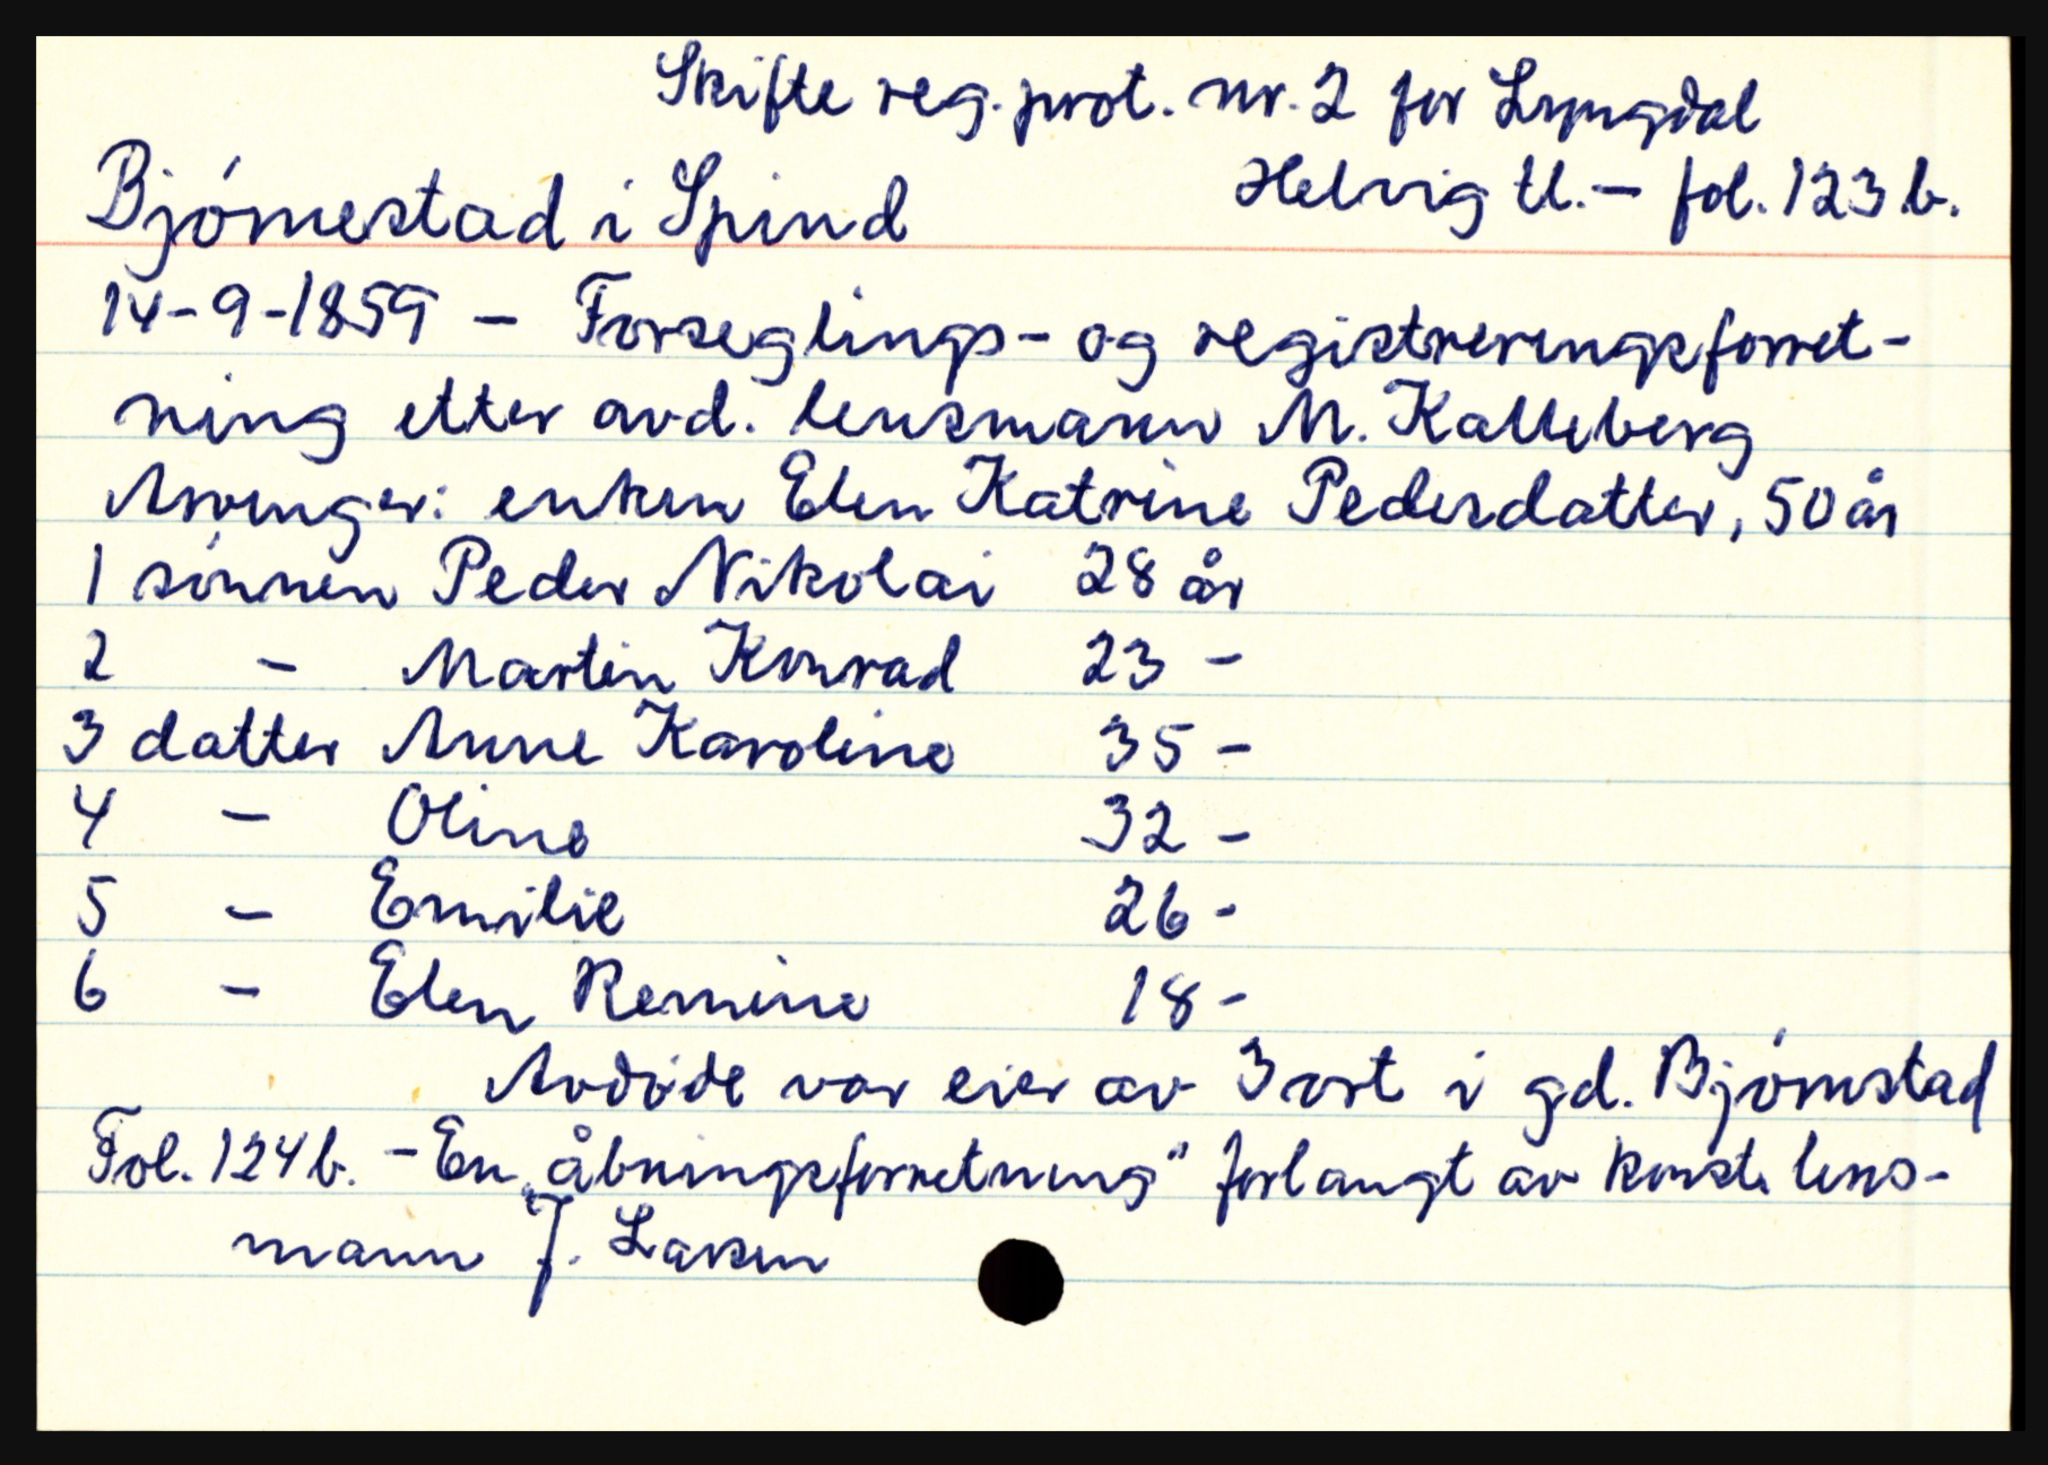 Skifte reg. prot. nr. 2 for Lyngdal
Bjørnestad i Spind
Helvig U. — fol. 123 b.
14-9-1859 — Forseglings- og registreringsforret-
ning etter avd. lensmann M. Kalleberg
Arvinger: enken Elen Katrine Pedersdatter, 50 år
1 sønnen Peder Nikolai 28 år
2 - Martin Konrad 23 -
3 datter Anne Karoline 35 -
4 - Oline 32 -
5 - Emilie 26 -
6 - Elen Remine 18 -
Avdøde var eier av 3 ort i gd. Bjørnstad
Fol. 124 b. - En „åbningsforretning" forlangt av konst. lens-
mann J. Larsen